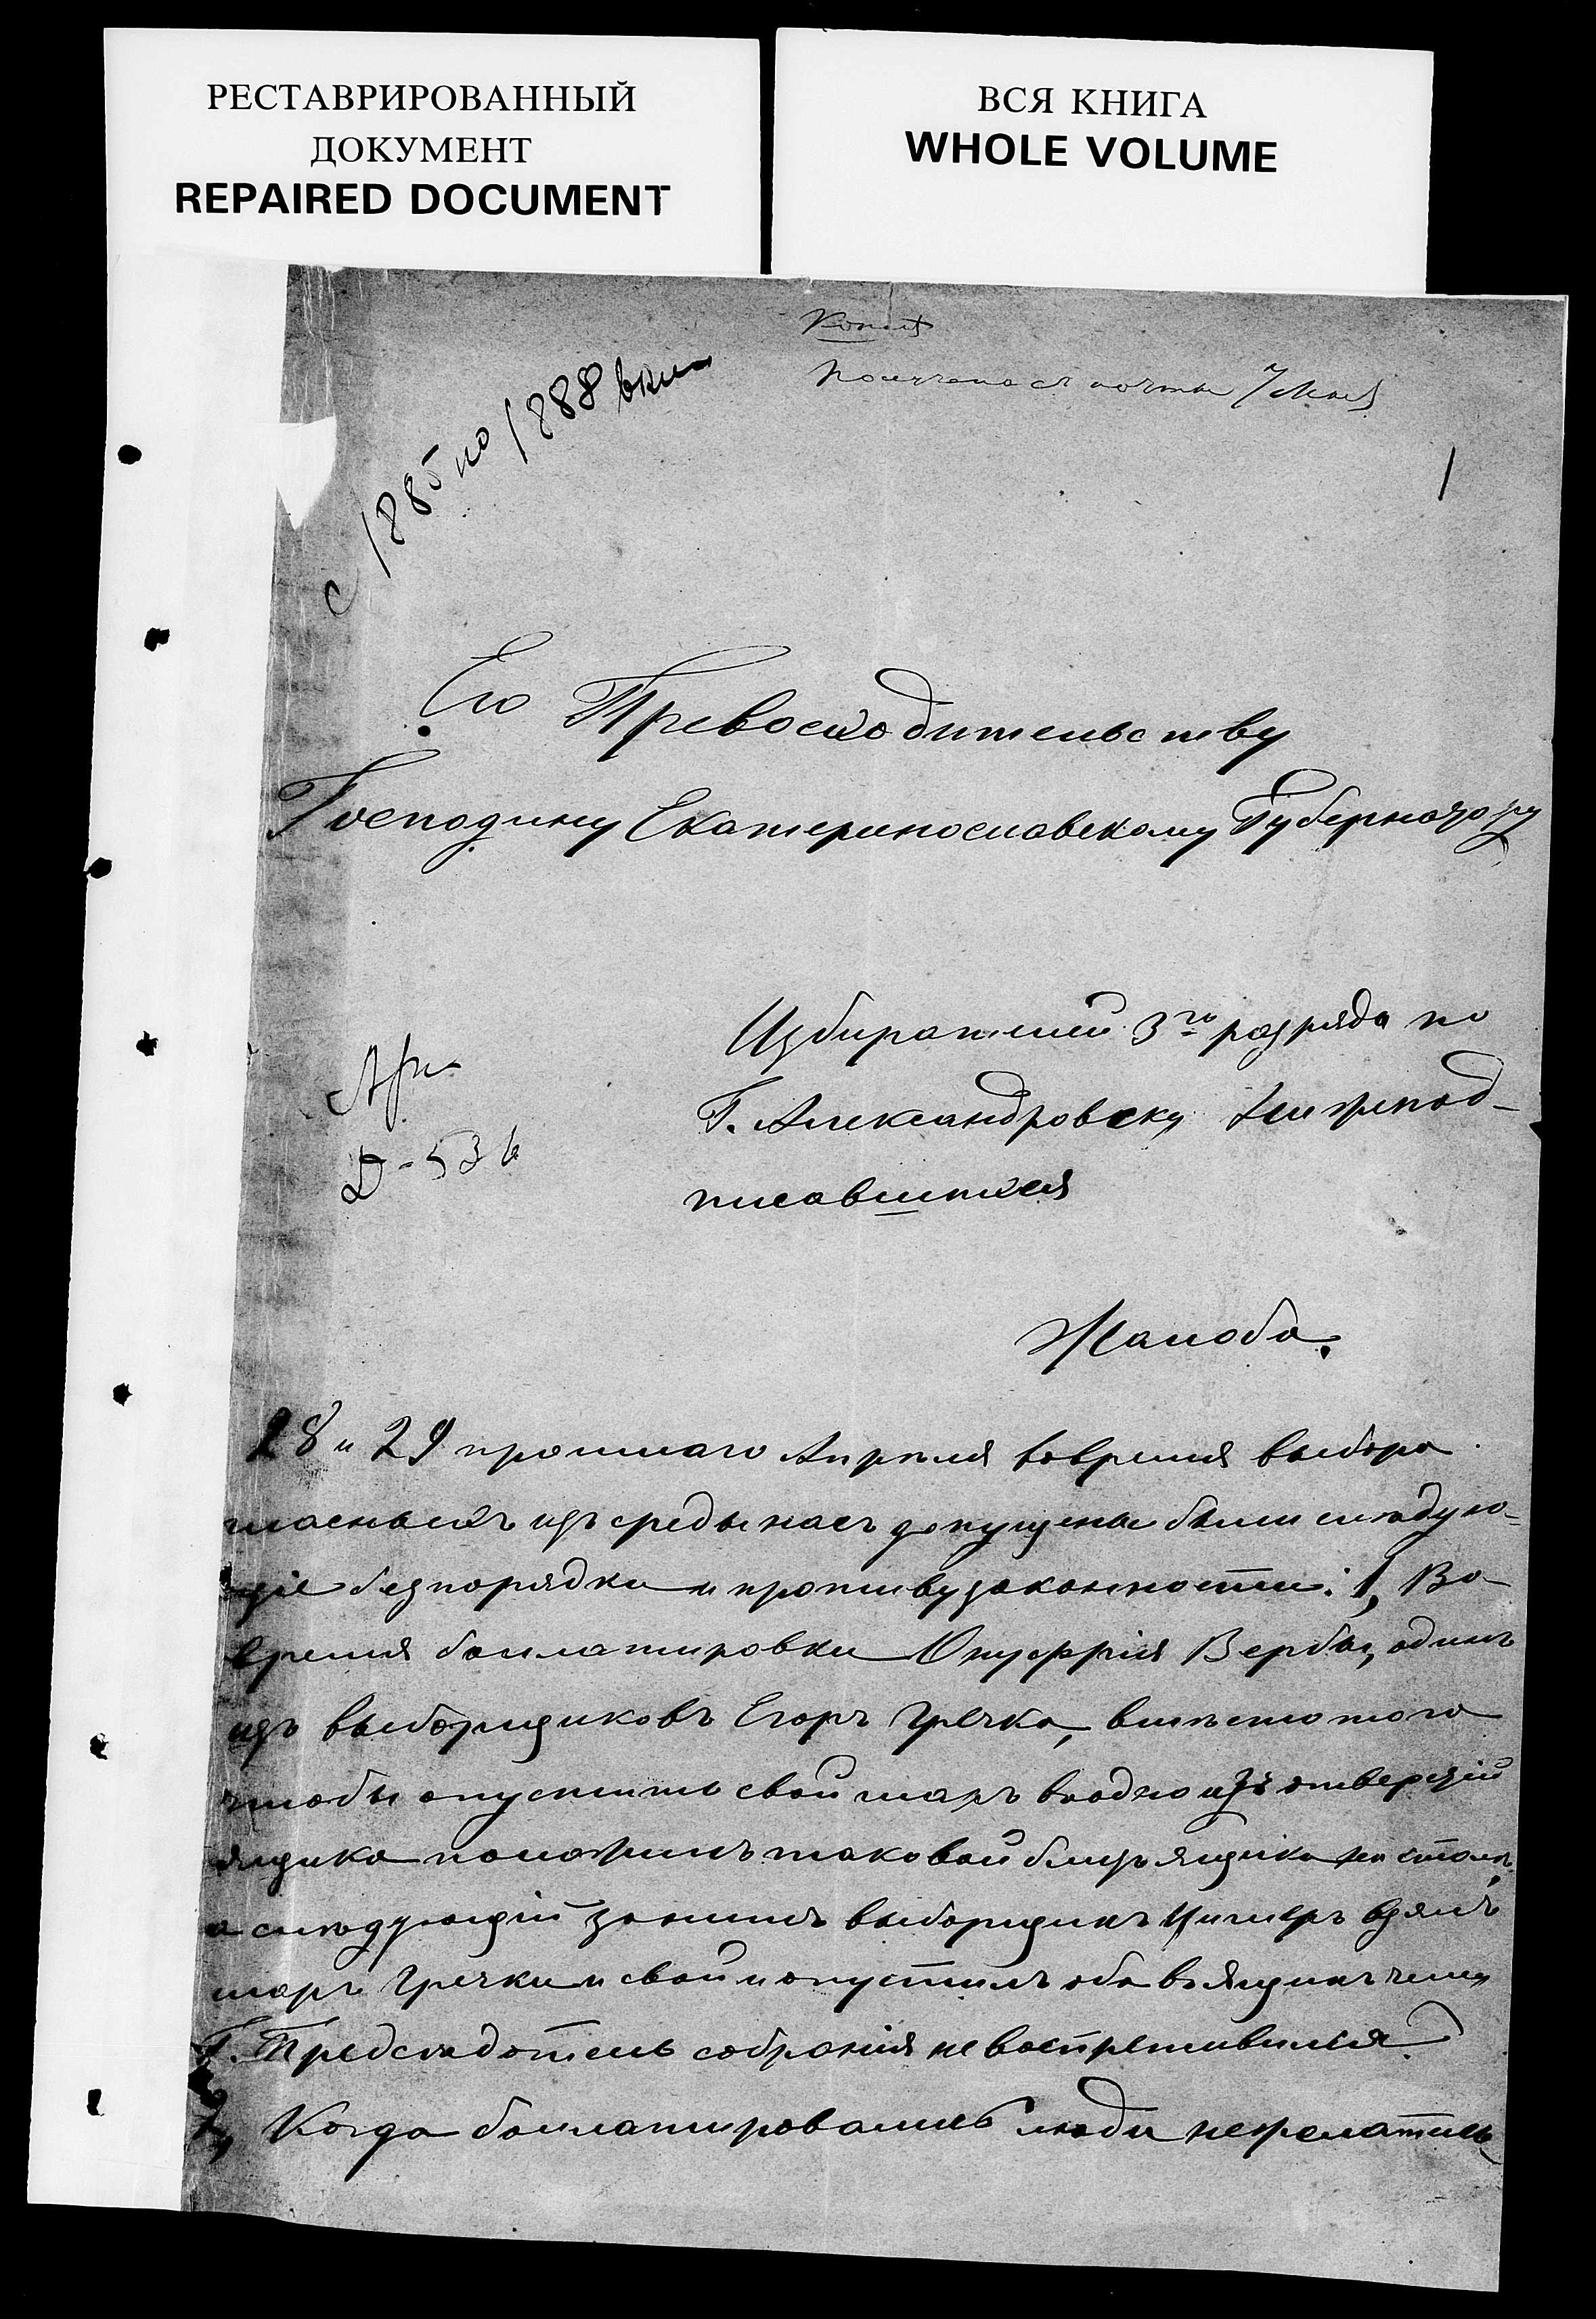 РЕСТАВРИРОВАННЫЙ
ДОКУМЕНТ
REPAIRED DOCUMENT
ВСЯ КНИГА
WHOLE VOLUME
Копия
Получена съ почты 7 Мая
с 1885 по 1888 вкл
1
Его Превосходительству
Господину Екатеринославскому Губернатору
Избирателей 3го разряда по
Г. Александровску нижепод-
писавшихся
Д-536
Жалоба.
28 и 29 прошлаго Апреля вовремя выбора
гласныхъ изъ среды насъ допущены были следую-
щіе безпорядки и противузаконности: 1, Во-
время баллатировки Онуфрія Вербы, одинъ
изъ выборщиковъ Егоръ Гречка, вместо того
чтобы опустить свой шаръ въ одно изъ отверзтій
ящика положилъ таковой близъ ящика на столъ,
а следующій за нимъ выборщикъ взялъ
шаръ Гречки и свой и опустилъ оба въ ящикъ чему
Г. Председатель собранія не воспрепивился
2, Когда баллатировались люди